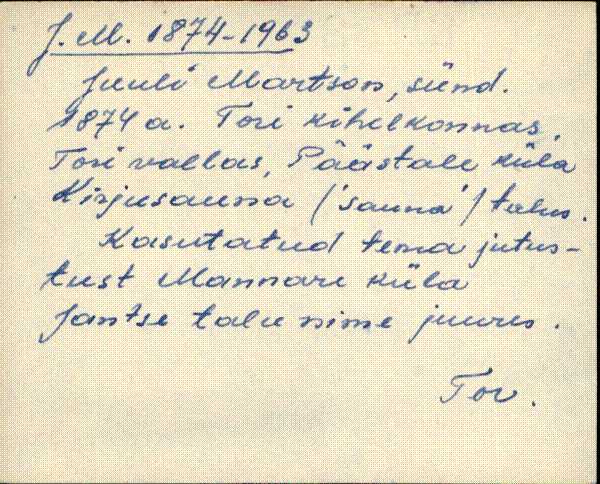 J. M. 1874-1963
Juuli Martson, sünd.
1874 a. Tori kihelkonnas,
Tori vallas, Päästale küla
Kirjusauna /'sauna'/ talus.
Kasutatud tema jutus-
tust Mannare küla
Jantse talu nime juures.
Tor.